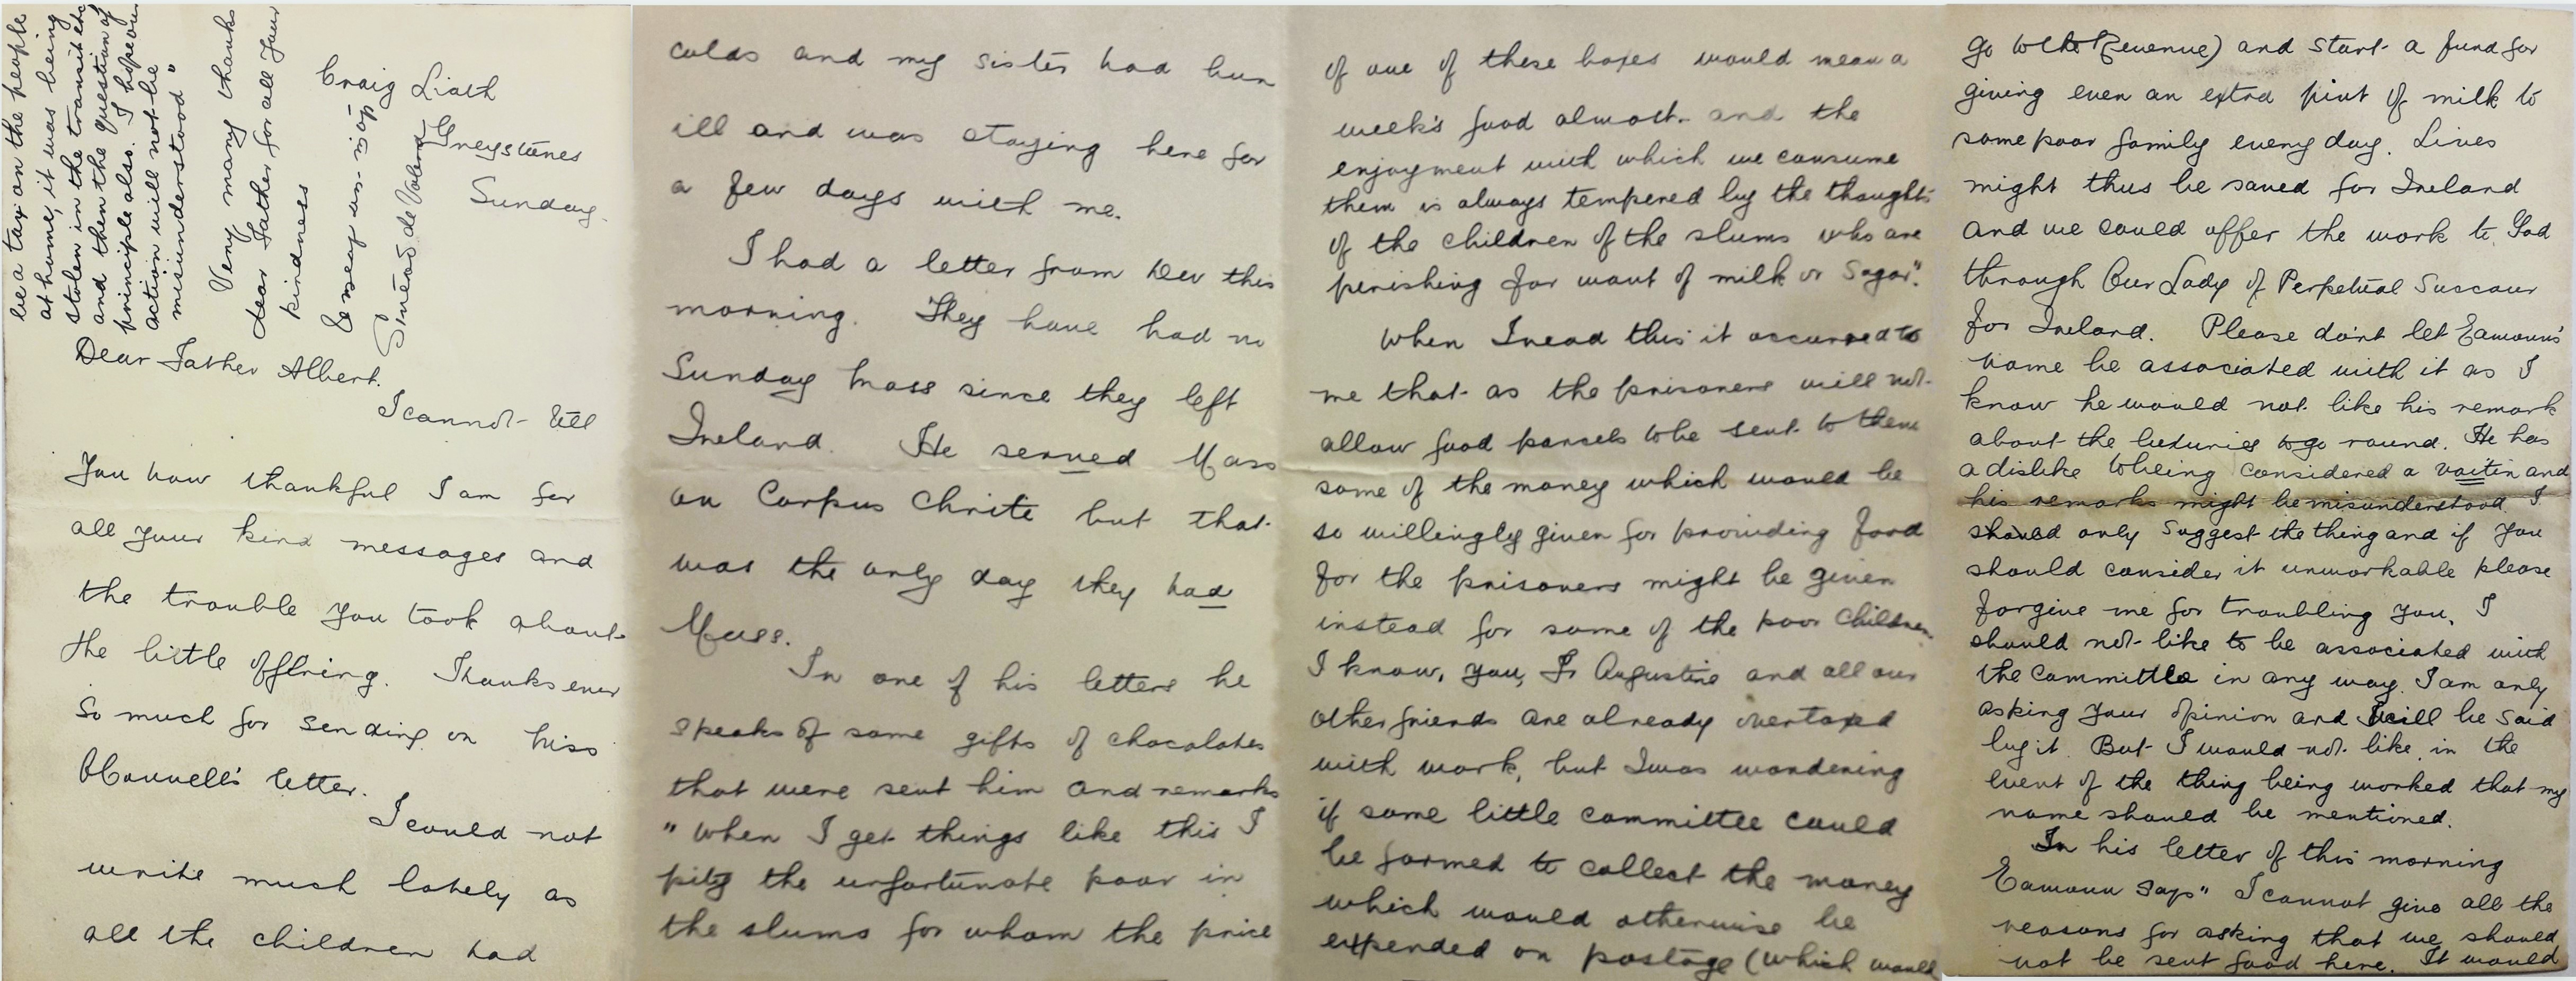 Craig Liath
Greystones
Sunday.
Dear Father Albert.
I cannot tell
you how thankful I am for
all your kind messages and
the trouble you took about
the little offering. Thanks ever
so much for sending on Miss
O'Connell's letter.
I could not
write much lately as
all the children had
colds and my sister had been
ill and was staying here for
a few days with me.
I had a letter from Dev this
morning. They have had no
Sunday Mass since they left
Ireland. He served Mass
on Corpus Christe but that
was the only day they had
Mass.
In one of his letters he
speaks of some gifts of chocolates
that were sent him and remarks
"When I get things like this I
pity the unfortunate poor in
the slums for whom the price
of one of these boxes would mean a
week's food almost and the
enjoyment with which we consume
them is always tempered by the thoughts
of the children of the slums who are
perishing for want of milk or sugar".
When I read this it occurred to
me that as the prisoners will not
allow food parcels to be sent to them
some of the money which would be
so willingly given for providing food
for the prisoners might be given
instead for some of the poor children.
I know, you, Fr Augustine and all our
other friends are already overtaxed
with work, but I was wondering
if some little committee could
be formed to collect the money
which would otherwise be
expended on postage (which would
go to the Revenue) and start a fund for
giving even an extra pint of milk to
some poor family every day. Lives
might thus be saved for Ireland
and we could offer the work to God
through Our Lady of Perpetual Succour
for Ireland. Please don't let Eamonn's
name be associated with it as I
know he would not like his remark
about the luxuries to go round. He has
a dislike to being considered a and
his remarks might be misunderstood. I
should only suggest the thing and if you
should consider it unworkable please
forgive me for troubling you. I
should not like to be associated with
the committee in any way. I am only
asking your opinion and will be said
by it. But I would not like, in the
event of the thing being worked that my
name should be mentioned.
In his letter of this morning
Eamonn says "I cannot give all the
reasons for asking that we should
not be sent food here. It would
be a tax on the people
at home, it was being
stolen in the transit etc
and then the question of
principle also. I hope our
action will not be
misunderstood"
Very many thanks
dear Father for all your
kindness
Le meas
Sinéad de Valera